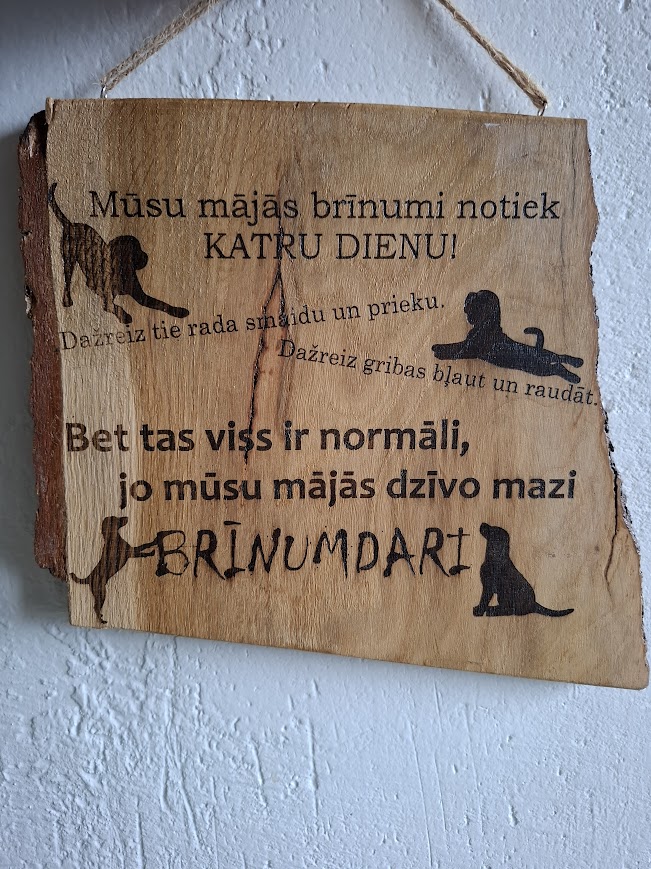 Mūsu mājās brīnumi notiek
KATRU DIENU!
Dažreiz tie rada smaidu un prieku.
Dažreiz gribas bļaut un raudāt.
Bet tas viss ir normāli,
jo mūsu mājās dzīvo mazi
BRĪNUMDARI